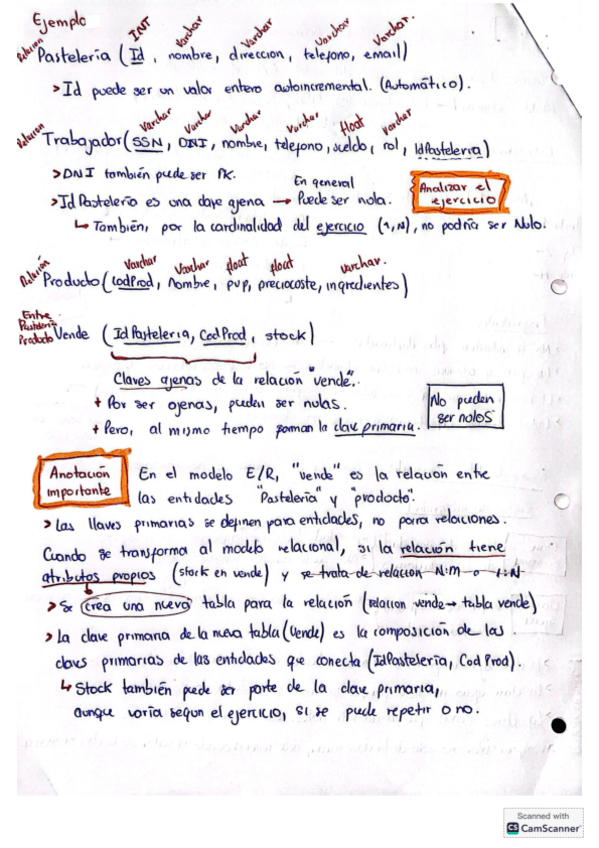 Ejemplo
Relación INT Varchar Varchar Varchar Varchar.
Pastelería (Id, nombre, direccion, telefono, email)
> Id puede ser un valor entero autoincremental. (Automático).
Relación Varchar Varchar Varchar Varchar float varchar
Trabajador (SSN, DNI, nombre, telefono, sueldo, rol, IdPasteleria)
> DNI también puede ser PK.
En general
> IdPastelería es una clave ajena → Puede ser nola.
Analizar el ejercicio
↳ También, por la cardinalidad del ejercicio (1,N), no podría ser Nulo.
Relación Varchar Varchar float float varchar.
Producto (CodProd, Nombre, pvp, preciocoste, ingredientes)
Entre Pastelería Producto
Vende (IdPasteleria, CodProd, stock)
Claves ajenas de la relación "vende".
+ Por ser ajenas, pueden ser nulas.
+ Pero, al mismo tiempo forman la clave primaria.
No pueden ser nolos
Anotación importante
En el modelo E/R, "vende" es la relación entre
las entidades "Pastelería" y "producto".
> Las llaves primarias se definen para entidades, no para relaciones.
Cuando se transforma al modelo relacional, si la relación tiene
atributos propios (stock en vende) y se trata de relacion N:M o 1:N
> Se crea una nueva tabla para la relación (relacion vende → tabla vende)
> La clave primaria de la nueva tabla (Vende) es la composición de las
claves primarias de las entidades que conecta (IdPastelería, Cod Prod).
↳ Stock también puede ser parte de la clave primaria,
aunque varía segun el ejercicio, si se puede repetir o no.
Scanned with
CS CamScanner